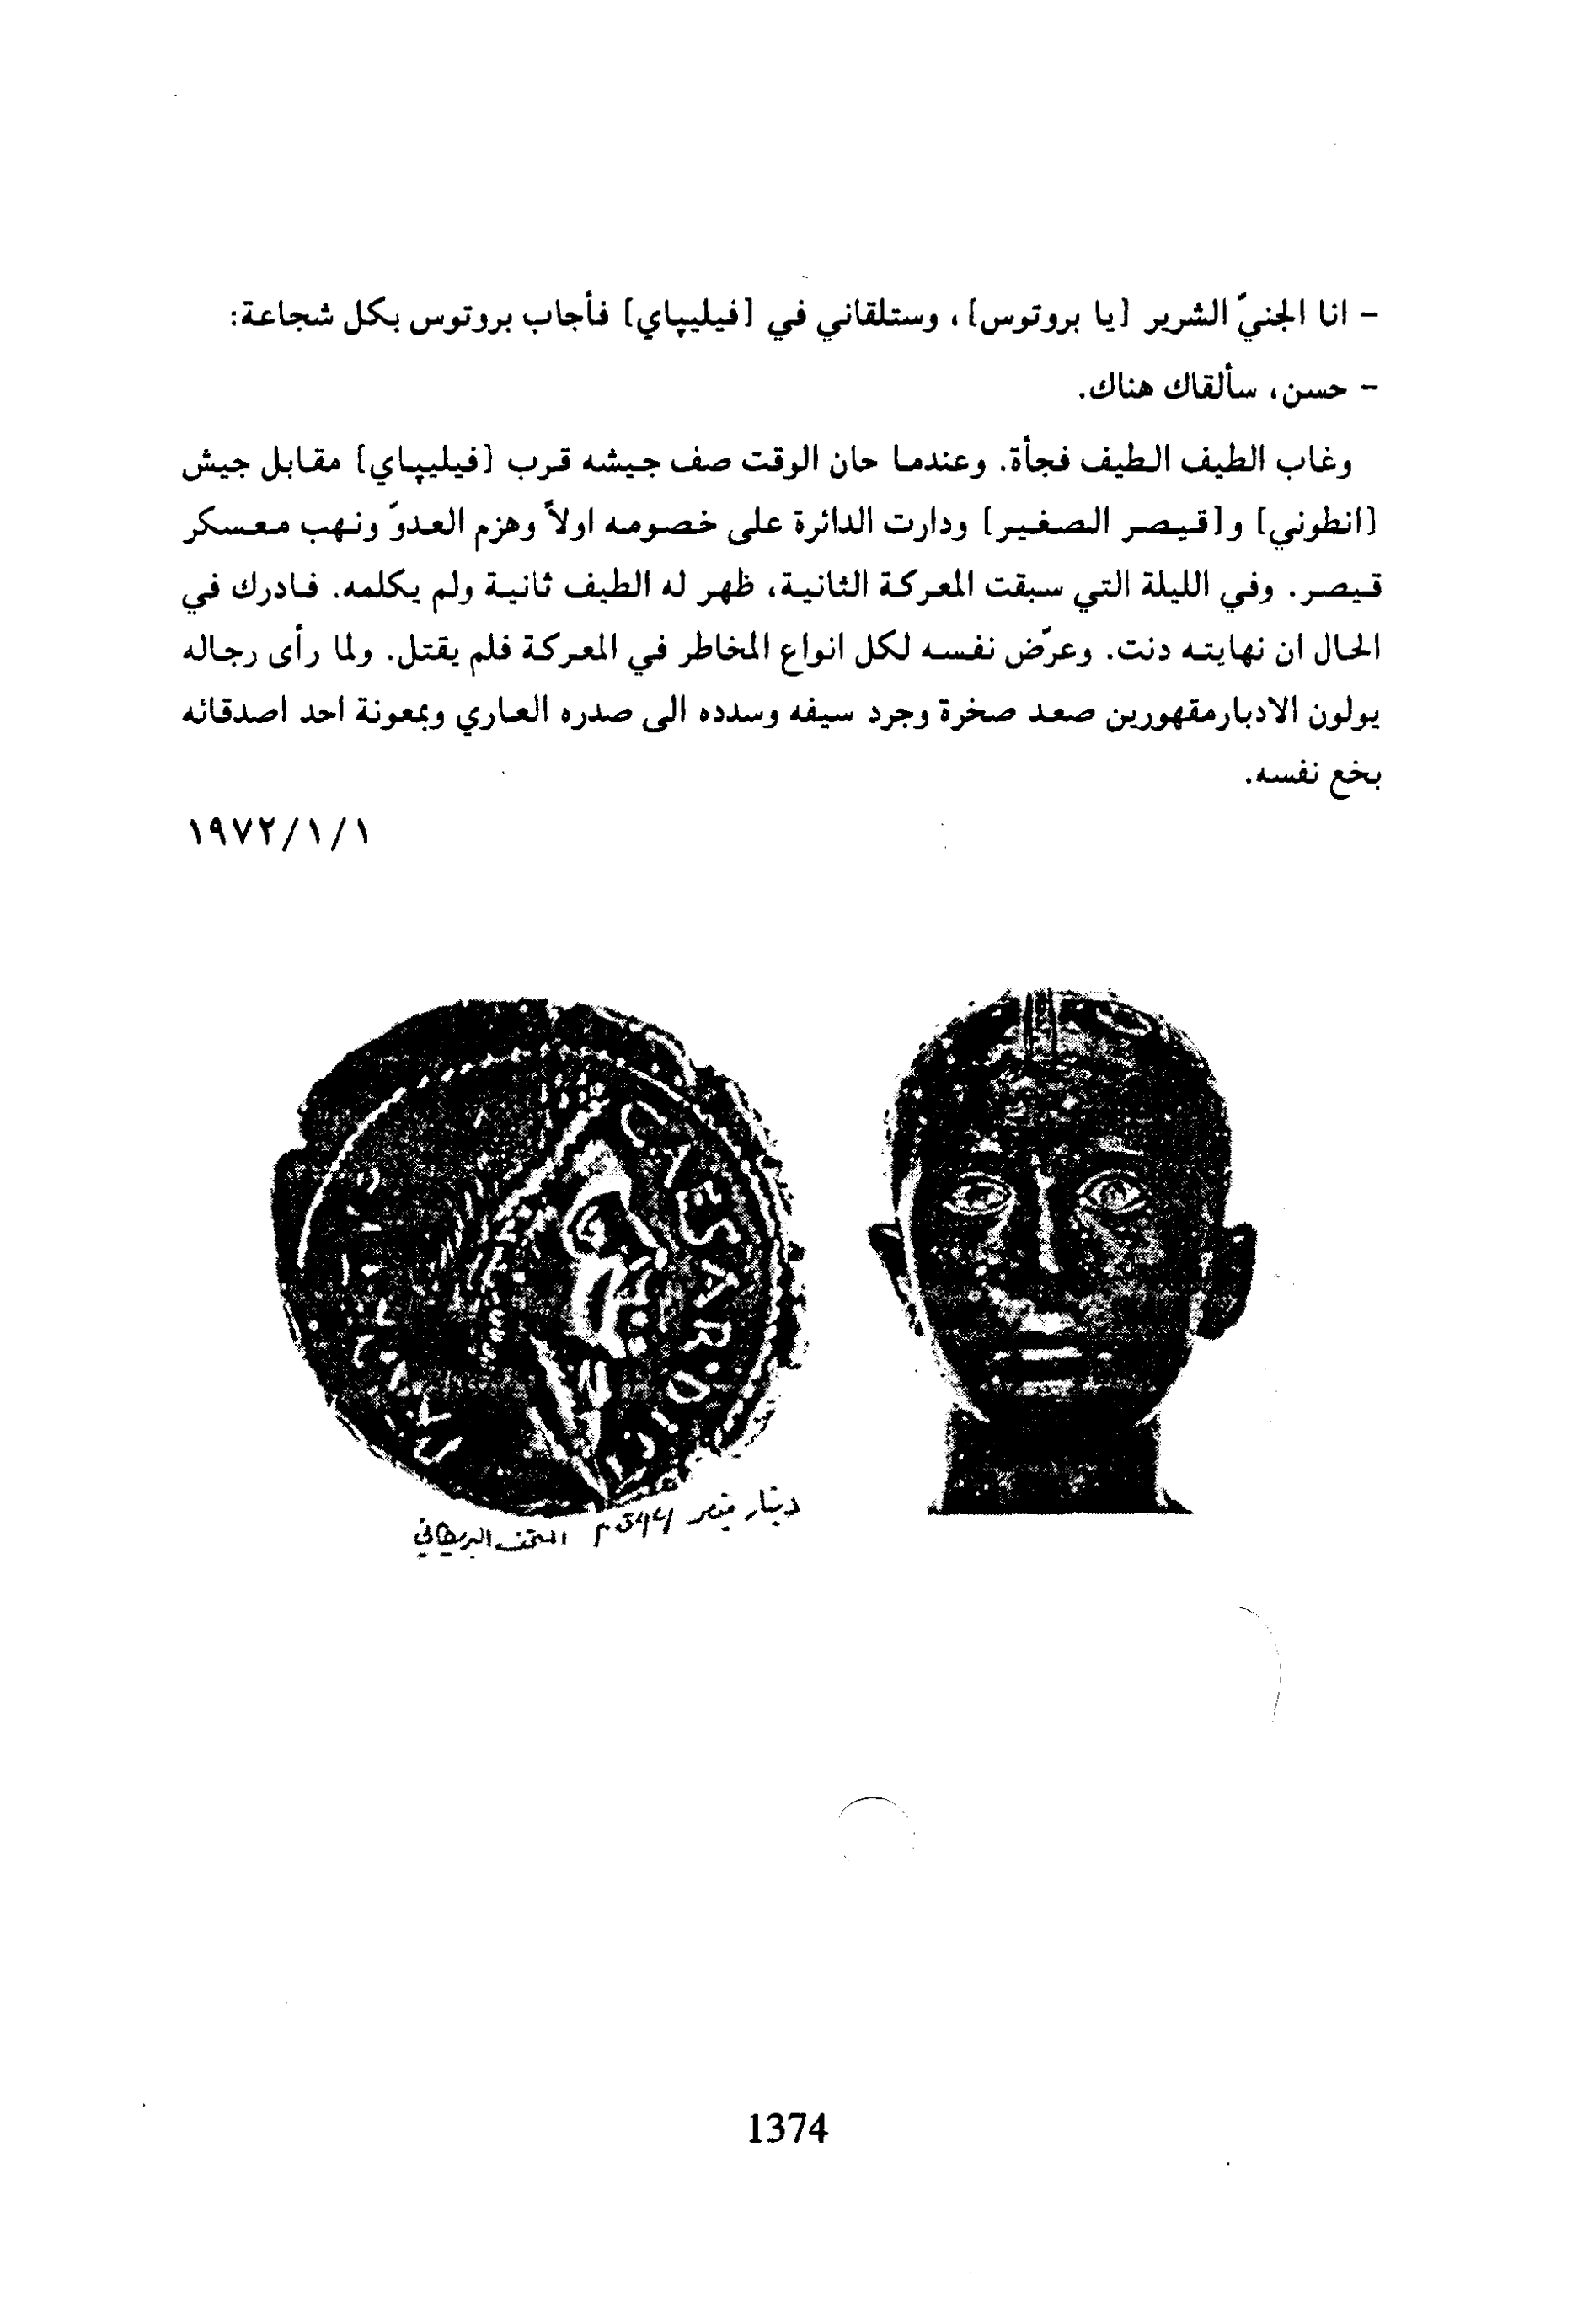 - انا الجنيّ الشرير [يا بروتوس]، وستلقاني في [فيليپاي] فأجاب بروتوس بكل شجاعة:
- حسن، سألقاك هناك.
وغاب الطيف الطيف فجأة. وعندما حان الوقت صف جيشه قرب [فيليپاي] مقابل جيش
[انطوني] و[قيصر الصغير] ودارت الدائرة على خصومه اولاً وهزم العدوّ ونهب معسكر
قيصر. وفي الليلة التي سبقت المعركة الثانية، ظهر له الطيف ثانية ولم يكلمه. فادرك في
الحال ان نهايته دنت. وعرّض نفسه لكل انواع المخاطر في المعركة فلم يقتل. ولما رأى رجاله
يولون الادبارمقهورين صعد صخرة وجرد سيفه وسدده الى صدره العاري وبمعونة احد اصدقائه
بخع نفسه.
١٩٧٢/١/١
CAESAR·DIC
دينار قيصر ٤٤ق م المتحف البريطاني
1374